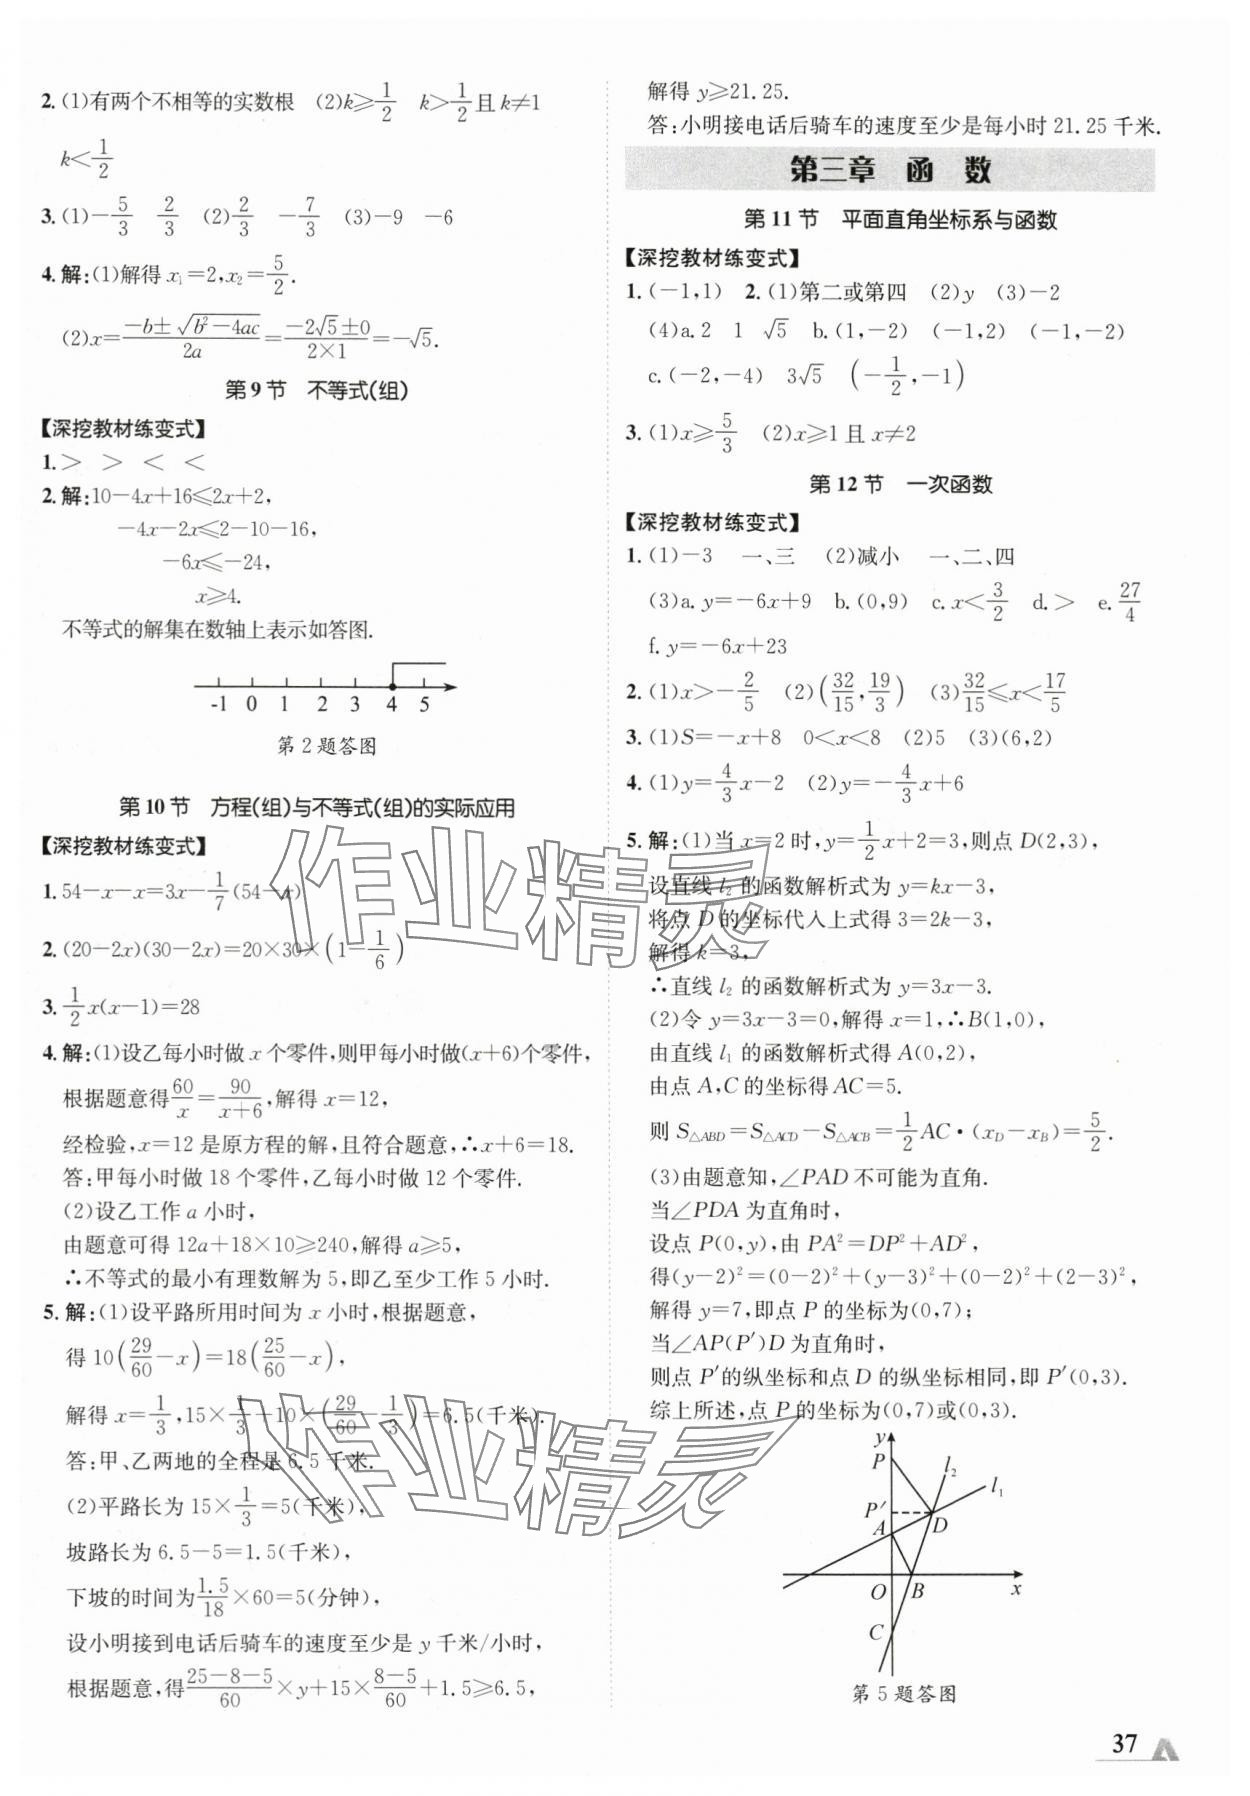 2.(1)有两个不相等的实数根 (2)k≥1/2 k>1/2且k≠1
k<1/2
3.(1)-5/3 2/3 (2)2/3 -7/3 (3)-9 -6
4.解:(1)解得x₁=2,x₂=5/2.
(2)x=(-b±√(b²-4ac))/2a=(-2√5±0)/(2×1)=-√5.
第9节 不等式(组)
【深挖教材练变式】
1.> > < <
2.解:10-4x+16≤2x+2,
-4x-2x≤2-10-16,
-6x≤-24,
x≥4.
不等式的解集在数轴上表示如答图.
-1 0 1 2 3 4 5
第2题答图
第10节 方程(组)与不等式(组)的实际应用
【深挖教材练变式】
1.54-x-x=3x-1/7(54-x)
2.(20-2x)(30-2x)=20×30×(1-1/6)
3.1/2x(x-1)=28
4.解:(1)设乙每小时做x个零件,则甲每小时做(x+6)个零件,
根据题意得60/x=90/(x+6),解得x=12,
经检验,x=12是原方程的解,且符合题意,∴x+6=18.
答:甲每小时做18个零件,乙每小时做12个零件.
(2)设乙工作a小时,
由题意可得12a+18×10≥240,解得a≥5,
∴不等式的最小有理数解为5,即乙至少工作5小时.
5.解:(1)设平路所用时间为x小时,根据题意,
得10(29/60-x)=18(25/60-x),
解得x=1/3,15×1/3+10×(29/60-1/3)=6.5(千米).
答:甲、乙两地的全程是6.5千米.
(2)平路长为15×1/3=5(千米),
坡路长为6.5-5=1.5(千米),
下坡的时间为1.5/18×60=5(分钟),
设小明接到电话后骑车的速度至少是y千米/小时,
根据题意,得(25-8-5)/60×y+15×(8-5)/60+1.5≥6.5,
解得y≥21.25.
答:小明接电话后骑车的速度至少是每小时21.25千米.
第三章 函 数
第11节 平面直角坐标系与函数
【深挖教材练变式】
1.(-1,1) 2.(1)第二或第四 (2)y (3)-2
(4)a.2 1 √5 b.(1,-2) (-1,2) (-1,-2)
c.(-2,-4) 3√5 (-1/2,-1)
3.(1)x≥5/3 (2)x≥1且x≠2
第12节 一次函数
【深挖教材练变式】
1.(1)-3 一、三 (2)减小 一、二、四
(3)a.y=-6x+9 b.(0,9) c.x<3/2 d.> e.27/4
f.y=-6x+23
2.(1)x>-2/5 (2)(32/15,19/3) (3)32/15≤x<17/5
3.(1)S=-x+8 0<x<8 (2)5 (3)(6,2)
4.(1)y=4/3x-2 (2)y=-4/3x+6
5.解:(1)当x=2时,y=1/2x+2=3,则点D(2,3),
设直线l₂的函数解析式为y=kx-3,
将点D的坐标代入上式得3=2k-3,
解得k=3,
∴直线l₂的函数解析式为y=3x-3.
(2)令y=3x-3=0,解得x=1,∴B(1,0),
由直线l₁的函数解析式得A(0,2),
由点A,C的坐标得AC=5.
则S△ABD=S△ACD-S△ACB=1/2AC·(xD-xB)=5/2.
(3)由题意知,∠PAD不可能为直角.
当∠PDA为直角时,
设点P(0,y),由PA²=DP²+AD²,
得(y-2)²=(0-2)²+(y-3)²+(0-2)²+(2-3)²,
解得y=7,即点P的坐标为(0,7);
当∠AP(P′)D为直角时,
则点P′的纵坐标和点D的纵坐标相同,即P′(0,3).
综上所述,点P的坐标为(0,7)或(0,3).
y
P
l₂
l₁
P′
A
D
O B x
C
第5题答图
37
作业精灵
作业精灵